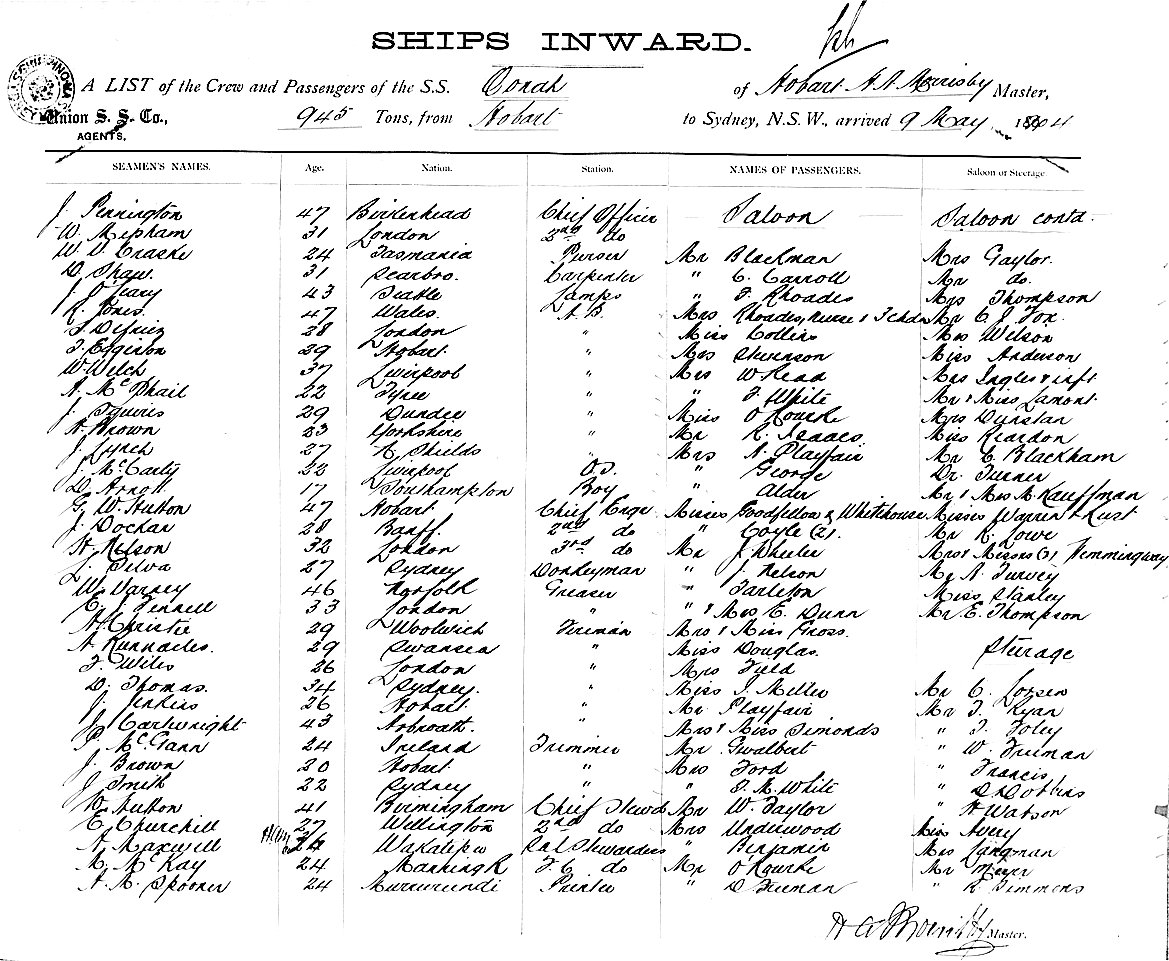 SHIPS INWARD.
A LIST of the Crew and Passengers of the S.S. Oonah of Hobart H A Morrisby Master,
Union S. S. Co., AGENTS. 945 Tons, from Hobart to Sydney, N.S.W., arrived 9 May 1904
SEAMEN'S NAMES. Age. Nation. Station. NAMES OF PASSENGERS. Saloon or Steerage
J. Pennington 47 Birkenhead Chief Officer Saloon Saloon contd.
W. Mepham 31 London 2nd do
W V Craske 24 Tasmania Purser Mr Blackman Mrs Gaylor.
D. Shaw. 31 Scarbro. Carpenter " C. Carroll Mr do.
J O'Leary 43 Seattle Lamps " F. Rhoades Mrs Thompson
R. Jones. 47 Wales. A.B. Mrs Rhoades, nurse & 3 chdn Mr C J Fox.
28 London " Miss Collins Mrs Wilson
29 Hobart " Mrs Stevenson Miss Anderson
W Welch 37 Liverpool " Mrs W Read Mrs Ingles & inft
A. McPhail 22 Tyree " " F. White Mr & Miss Lamont.
J. Squires 29 Dundee " Miss O'Rourke Mrs Dunstan
A Brown 23 Yorkshire " Mr R. Isaacs Miss Reardon
J. Lynch 27 N. Shields " Mrs A. Playfair Mr C Blackham
J. McCarty 22 Liverpool O.S. " George Dr. Turner
D. Arnott 17 Southampton Boy " Alder Mr & Mrs M. Kauffman
G. W. Hutton 47 Hobart Chief Engr Misses Goodfellow & Whitehouse Misses Warren & Rust
J. Dockar 28 Banff. 2nd do " Coyle (2). Mr R. Lowe
H. Nelson 32 London 3rd do Mr J. Wheeler Mrs & Misses (3) Hemmingway
L. Silva 27 Sydney Donkeyman " J. Nelson Mr A. Turvey
W. Varney 46 Norfolk Greaser " Tarleton Miss Stanley
E. J. Fennell 33 London " " & Mrs E. Dunn Mr E. Thompson
A Christie 29 Woolwich Fireman Mrs & Miss Gross.
A Runnacles. 29 Swansea " Miss Douglas. Steerage
F. Wiles 26 London " Mrs Field
D. Thomas. 34 Sydney. " Miss I. Miller Mr C. Jorsen
J. Jenkins 26 Hobart " Mr Playfair Mr F. Ryan
J Cartwright 43 Arbroath. " Mrs & Miss Simonds " F. Foley
P. McGann 24 Ireland Trimmer Mr Gwalbert " W. Truman
J. Brown 20 Hobart " Mrs Ford " Francis
J Smith 22 Sydney " " F. M. White " D. Dobbins
W. Hutton 41 Birmingham Chief Stewd Mr W. Taylor " H Watson
E. Churchill 27 Wellington 2nd do Mrs Underwood Miss Avery
A Maxwell 26 Wakatipu Stewardess " Benjamin Mrs Langman
M. McKay 24 F. C. do Mr O'Rourke Mr Meyer
A. M. Spooner 24 Murrurundi Printer " D Freeman " R Simmens
Master.